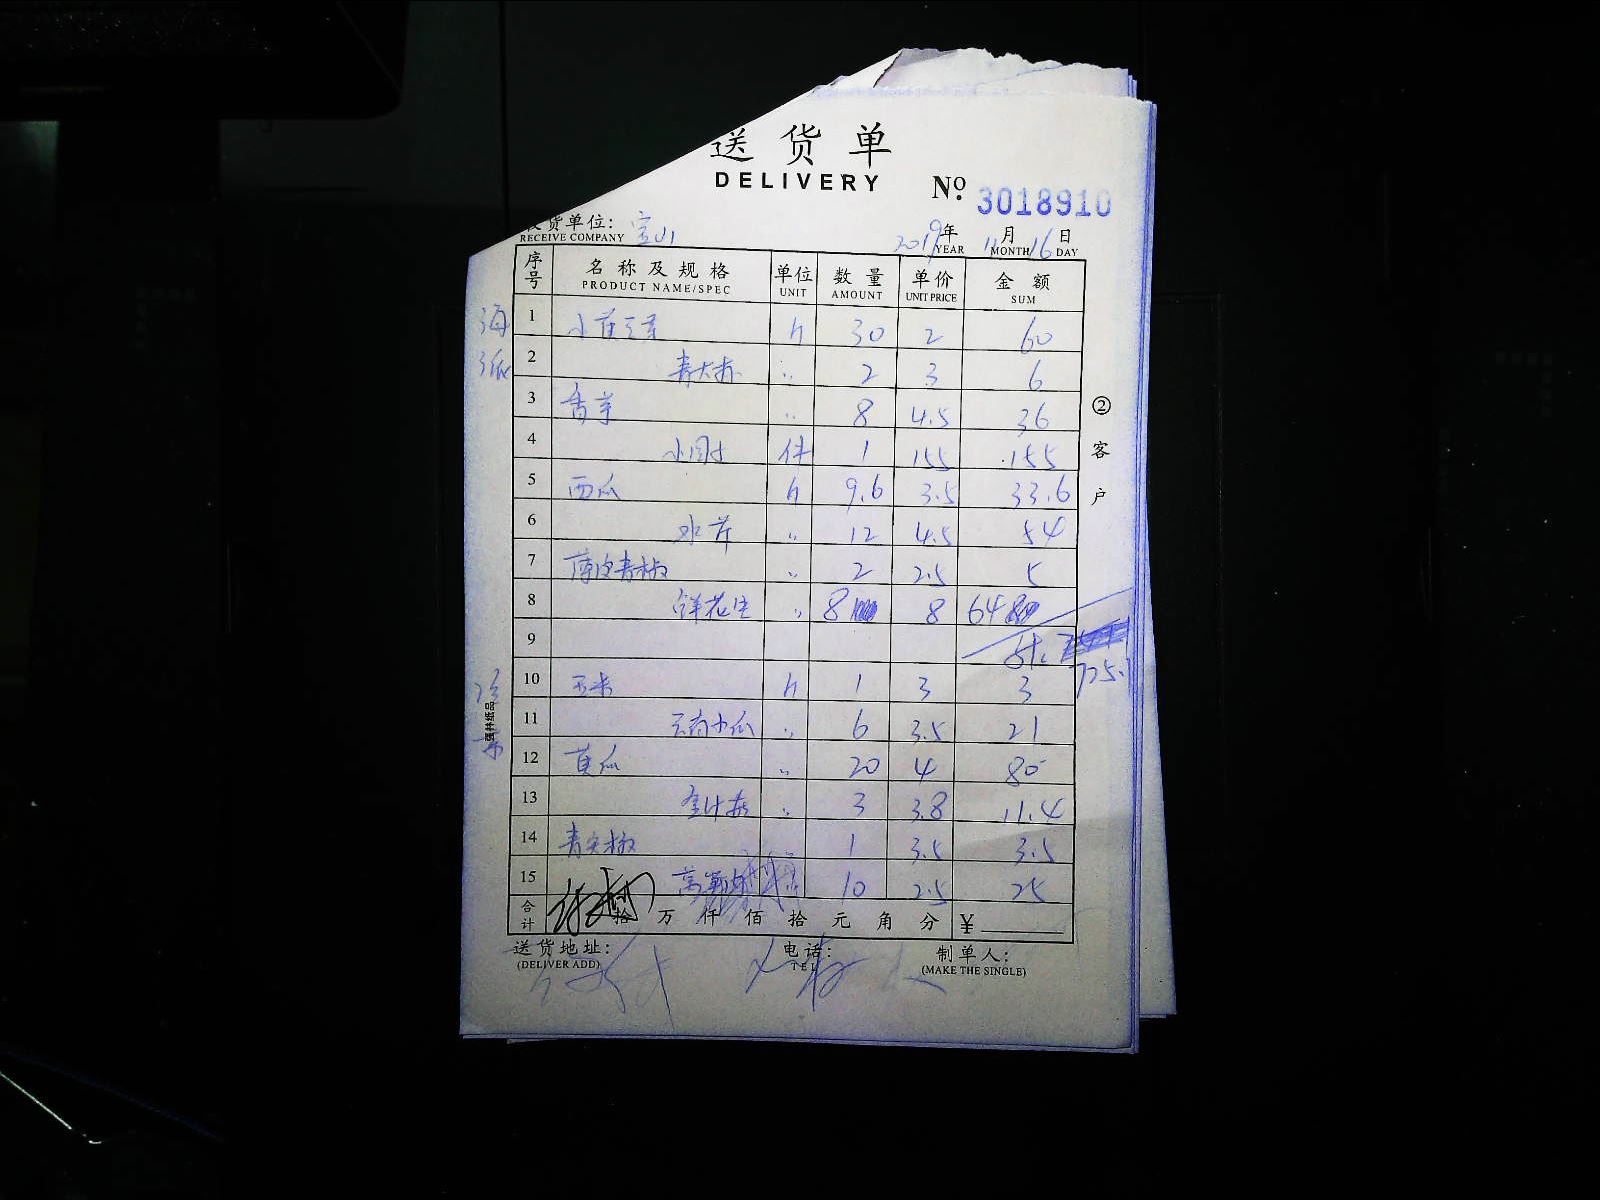 送货单
DELIVERY
Nº 3018910
货单位: 宝山
RECEIVE COMPANY
2019年 11月 16日
YEAR MONTH DAY
序号 名称及规格 单位 数量 单价 金额
PRODUCT NAME/SPEC UNIT AMOUNT UNIT PRICE SUM
1 30 2 60
2 青大赤 〃 2 3 6
3 香芋 〃 8 4.5 36
4 件 1 155 155
5 西瓜 斤 9.6 3.5 33.6
6 水芹 〃 12 4.5 54
7 薄皮青椒 〃 2 2.5 5
8 鲜花生 〃 8 8 64
9
725.1
10 玉米 斤 1 3 3
11 云南小瓜 〃 6 3.5 21
12 黄瓜 〃 20 4 80
13 金针菇 〃 3 3.8 11.4
14 青尖椒 1 3.5 3.5
15 10 2.5 25
合计 拾 万 仟 佰 拾 元 角 分 ¥
送货地址: 电话: 制单人:
(DELIVER ADD) TEL (MAKE THE SINGLE)
②客户
海派
强林纸品